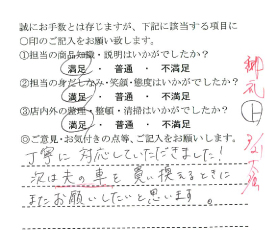 誠にお手数とは存じますが、下記に該当する項目に
○印のご記入をお願い致します。
①担当の商品知識・説明はいかがでしたか?
満足 ・ 普通 ・ 不満足
②担当の身だしなみ・笑顔・態度はいかがでしたか?
満足 ・ 普通 ・ 不満足
③店内外の整理・整頓・清掃はいかがでしたか?
満足 ・ 普通 ・ 不満足
◎ご意見・お気付きの点等、ご記入をお願いします。
丁寧に対応していただきました!
次は夫の車を買い換えるときに
またお願いしたいと思います。
御礼
上